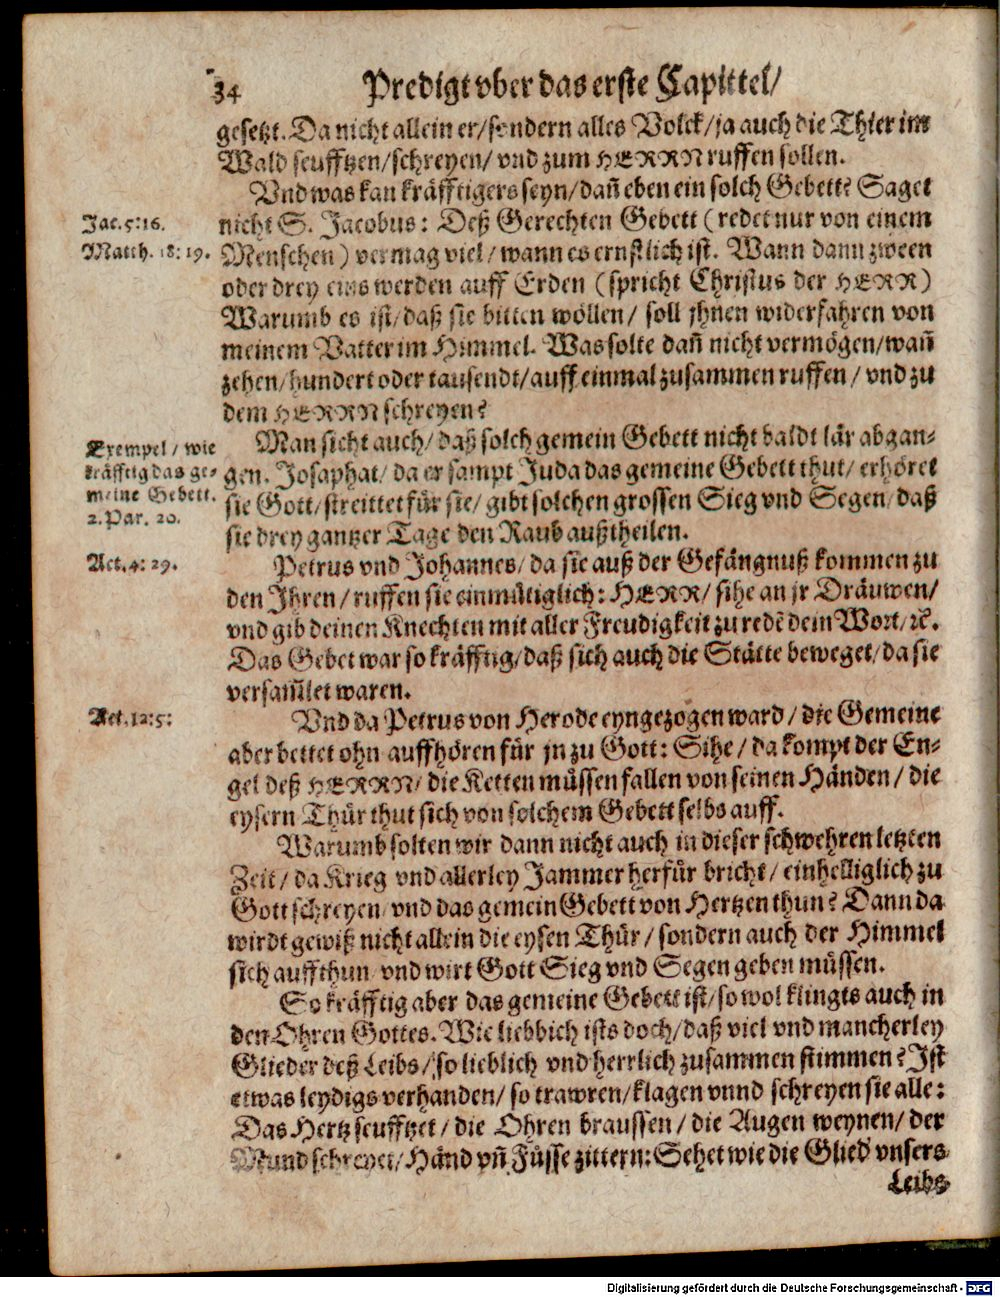 34
Predigt vber das erste Capittel/
gesetzt. Da nicht allein er/ sondern alles Volck/ ja auch die Thier im
Wald seufftzen/ schreyen/ vnd zum HERRN ruffen sollen.
Vnd was kan kräfftigers seyn/ dañ eben ein solch Gebett? Saget
Jac. 5: 16.
nicht S. Jacobus: Deß Gerechten Gebett (redet nur von einem
Matth. 18: 19.
Menschen) vermag viel/ wann es ernstlich ist. Wann dann zween
oder drey eins werden auff Erden (spricht Christus der HERR)
Warumb es ist/ daß sie bitten wöllen/ soll jhnen widerfahren von
meinem Vatter im Himmel. Was solte dañ nicht vermögen/ wañ
zehen/ hundert oder tausendt/ auff einmal zusammen ruffen/ vnd zu
dem HERRN schreyen?
Exempel/ wie
kräfftig das ge-
meine Gebett.
2. Par. 20.
Man sicht auch/ daß solch gemein Gebett nicht baldt lär abgan-
gen. Josaphat/ da er sampt Juda das gemeine Gebett thut/ erhöret
sie Gott/ streittet für sie/ gibt solchen grossen Sieg vnd Segen/ daß
sie drey gantzer Tage den Raub außtheilen.
Act. 4: 29.
Petrus vnd Johannes/ da sie auß der Gefängnuß kommen zu
den Jhren/ ruffen sie einmütiglich: HERR/ sihe an jr Dräuwen/
vnd gib deinen Knechten mit aller Freudigkeit zu redẽ dein Wort/ ꝛc̃.
Das Gebet war so kräfftig/ daß sich auch die Stätte beweget/ da sie
versam̃let waren.
Act. 12: 5:
Vnd da Petrus von Herode eyngezogen ward/ die Gemeine
aber bettet ohn auffhören für jn zu Gott: Sihe/ da kompt der En-
gel deß HERRN/ die Ketten müssen fallen von seinen Händen/ die
eysern Thür thut sich von solchem Gebett selbs auff.
Warumb solten wir dann nicht auch in dieser schwehren letzten
Zeit/ da Krieg vnd allerley Jammer herfür bricht/ einhelliglich zu
Gott schreyen/ vnd das gemein Gebett von Hertzen thun? Dann da
wirdt gewiß nicht allein die eysen Thür/ sondern auch der Himmel
sich auffthun/ vnd wirt Gott Sieg vnd Segen geben müssen.
So kräfftig aber das gemeine Gebett ist/ so wol klingts auch in
den Ohren Gottes. Wie liebbich ists doch/ daß viel vnd mancherley
Glieder deß Leibs/ so lieblich vnd herrlich zusammen stimmen? Ist
etwas leydigs verhanden/ so trawren/ klagen vnnd schreyen sie alle:
Das Hertz seufftzet/ die Ohren braussen/ die Augen weynen/ der
Mund schreyet/ Händ vñ Füsse zittern: Sehet wie die Glied vnsers
Leibs
Digitalisierung gefördert durch die Deutsche Forschungsgemeinschaft - DFG